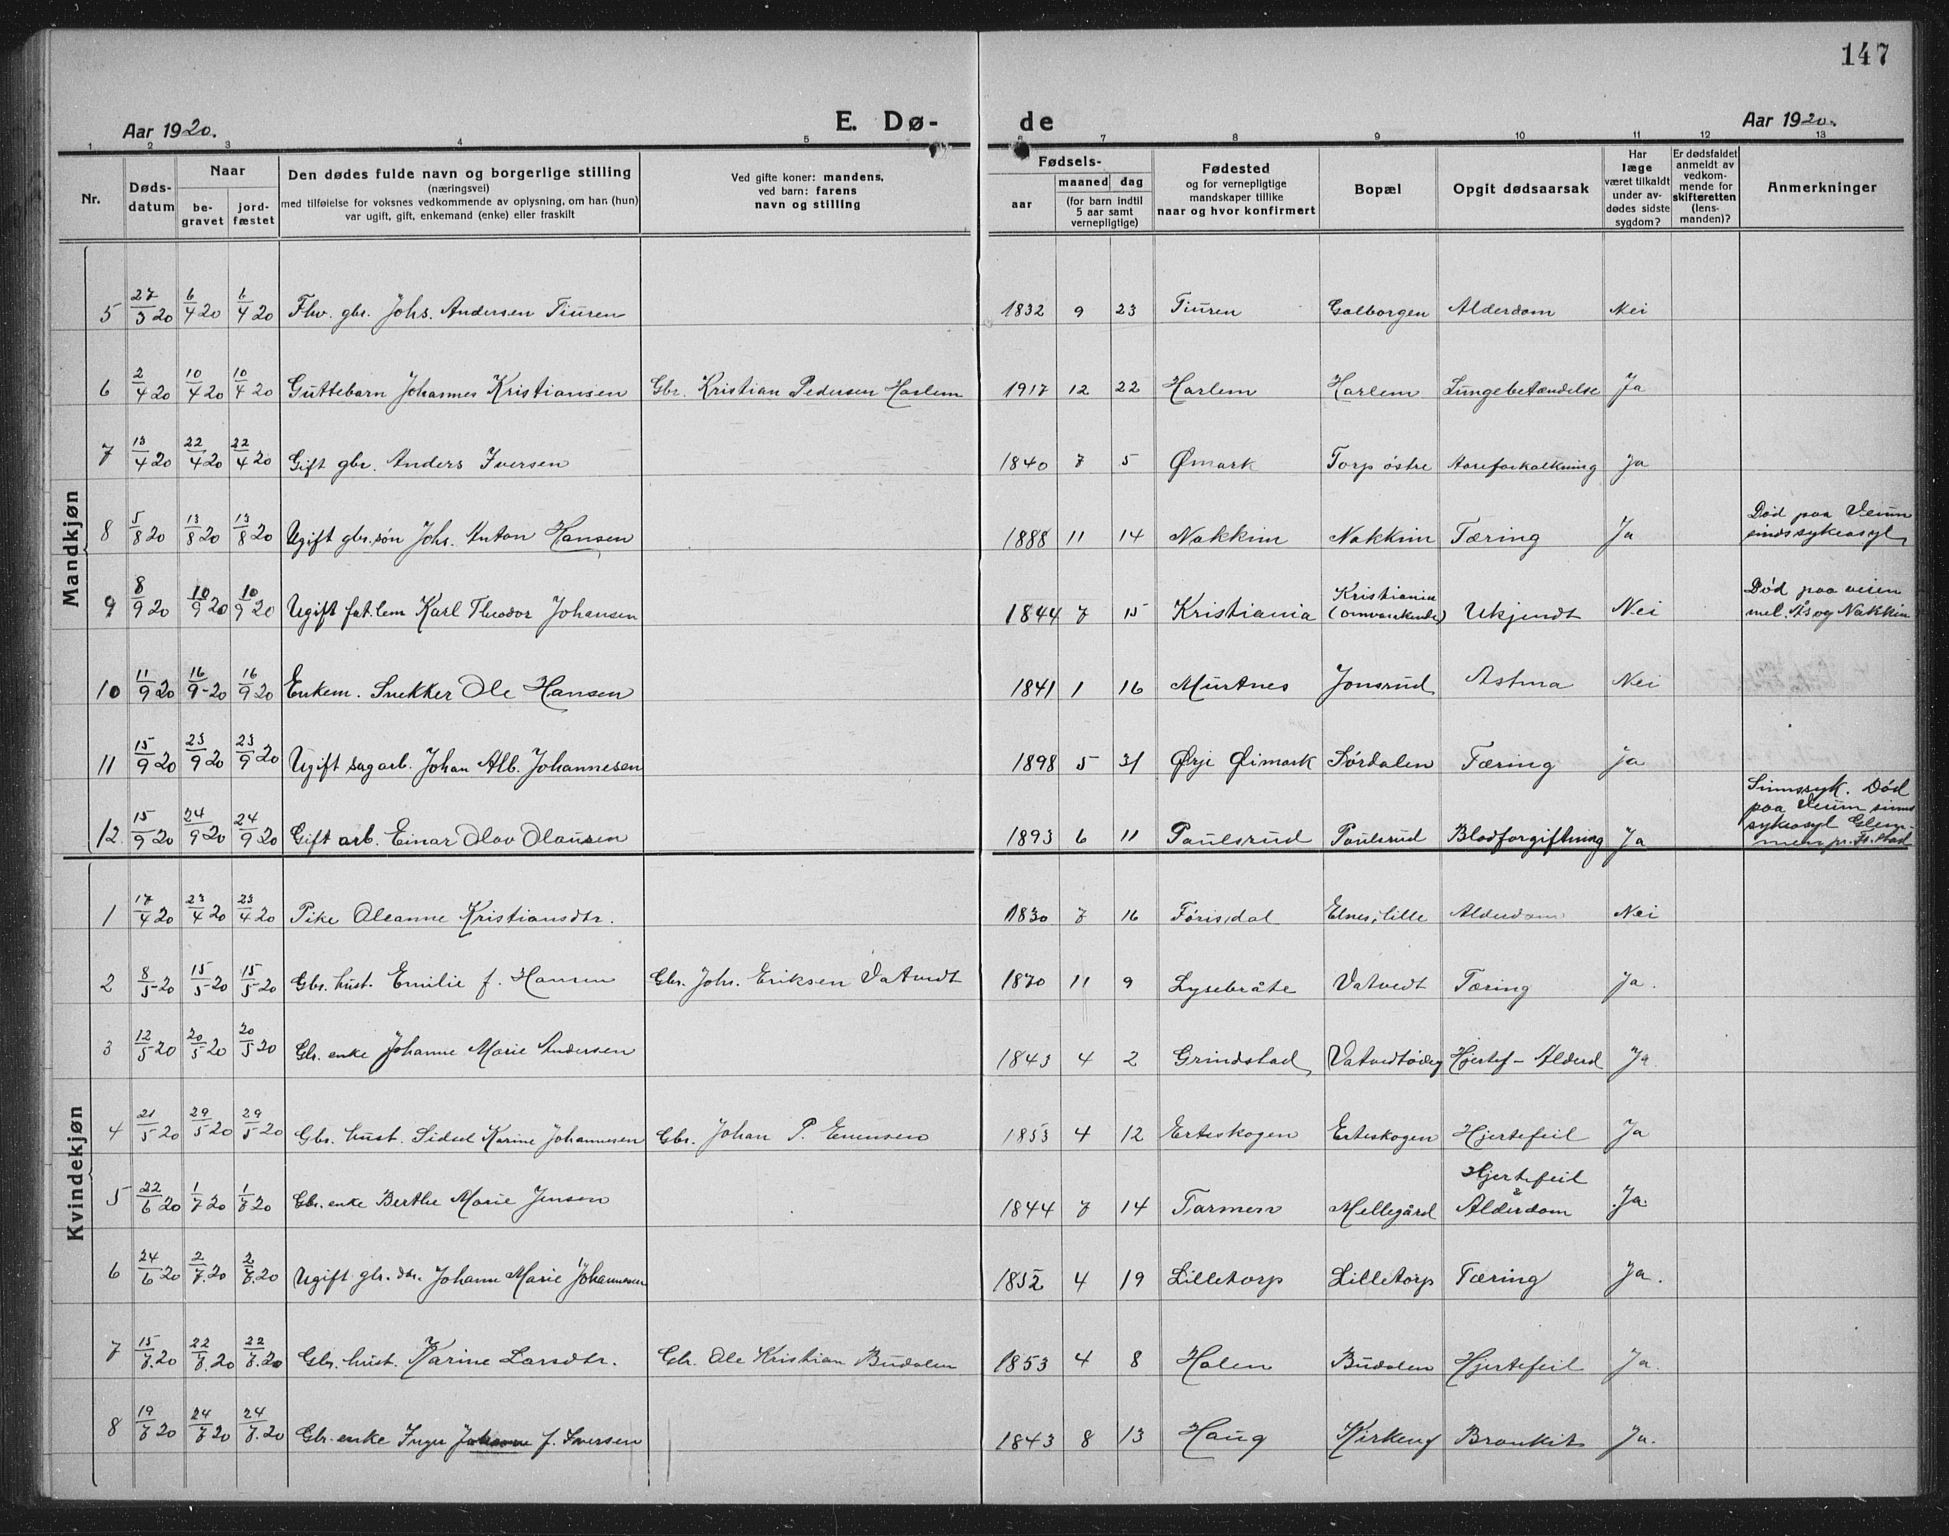 147
Aar 1920. E. Dø- de Aar 1920.
1 2 3 4 5 6 7 8 9 10 11 12 13
Nr. Døds-datum Naar be-gravet jord-fæstet Den dødes fulde navn og borgerlige stilling (næringsvei) med tilføielse for voksnes vedkommende av oplysning, om han (hun) var ugift, gift, enkemand (enke) eller fraskilt Ved gifte koner: mandens, ved barn: farens navn og stilling Fødsels- aar maaned dag (for barn indtil 5 aar samt vernepligtige) Fødested og for vernepligtige mandskaper tillike naar og hvor konfirmert Bopæl Opgit dødsaarsak Har læge været tilkaldt under av-dødes sidste sygdom? Er dødsfaldet anmeldt av vedkom-mende for skifteretten (lens-manden)? Anmerkninger
Mandkjøn
5 27/3 20 6/4 20 6/4 20 Fhv. gbr. Johs. Andersen Tiuren 1832 9 23 Tiuren Golborgen Alderdom Nei
6 2/4 20 10/4 20 10/4 20 Guttebarn Johannes Kristiansen Gbr. Kristian Pedersen Harlem 1917 12 22 Harlem Harlem Lungebetændelse Ja
7 13/4 20 22/4 20 22/4 20 Gift gbr. Anders Iversen 1840 7 5 Ømark Torp østre Aareforkalkning Ja
8 5/8 20 13/8 20 13/8 20 Ugift gbr. søn Johs. Anton Hansen 1888 11 14 Nakkim Nakkim Tæring Ja Død paa Veum sindssykeasyl
9 8/9 20 10/9 20 10/9 20 Ugift fat.lem Karl Theodor Johansen 1844 7 15 Kristiania Kristiania (omvankende) Ukjendt Nei Død paa veien mel. Ås og Nakkim
10 11/9 20 16/9 20 16/9 20 Enkem. Snekker Ole Hansen 1841 1 16 Murtnes Jonsrud Astma Nei
11 15/9 20 23/9 20 23/9 20 Ugift sagarb. Johan Alb. Johannesen 1898 5 31 Ørje Øimark Sørdalen Tæring Ja
12 15/9 20 24/9 20 24/9 20 Gift arb. Einar Olav Olausen 1893 6 11 Paulsrud Paulsrud Blodforgiftning Ja Sinnssyk. Død paa Veum sinnssykeasyl Glemmen pr. Fr.stad
Kvindekjøn
1 17/4 20 23/4 20 23/4 20 Pike Oleanne Kristiansdtr. 1830 7 16 Førisdal Elnes, lille Alderdom Nei
2 8/5 20 15/5 20 15/5 20 Gbr. hust. Emilie f. Hansen Gbr. Johs. Eriksen Vatvedt 1870 11 9 Lysebråte Vatvedt Tæring Ja.
3 12/5 20 20/5 20 20/5 20 Gbr. enke Johanne Marie Andersen 1843 4 2 Grindstad Vatvedtødeg Hjertef – Alderd Ja.
4 21/5 20 29/5 20 29/5 20 Gbr. hust. Sidsel Karine Johannesen Gbr. Johan P. 1853 4 12 Erteskogen Erteskogen Hjertefeil Ja
5 22/6 20 1/7 20 1/7 20 Gbr. enke Berthe Marie Jensen 1844 7 14 Tarmen Mellegård Hjertefeil & Alderdom Ja.
6 24/6 20 2/7. 20 2/7. 20 Ugift gbr. dtr. Johanne Marie Johannesen 1852 4 19 Lilletorp Lilletorp Tæring Ja.
7 15/7. 20 22/7. 20 22/7. 20 Gbr. hust. Karine Larsdtr. Gbr. Ole Kristian Budalen 1853 4 8 Holen Budalen Hjertefeil Ja.
8 19/7 20 24/7 20 24/7. 20 Gbr. enke Inger Johanne f. Iversen 1843 8 13 Haug Kirkeng Bronkit Ja.